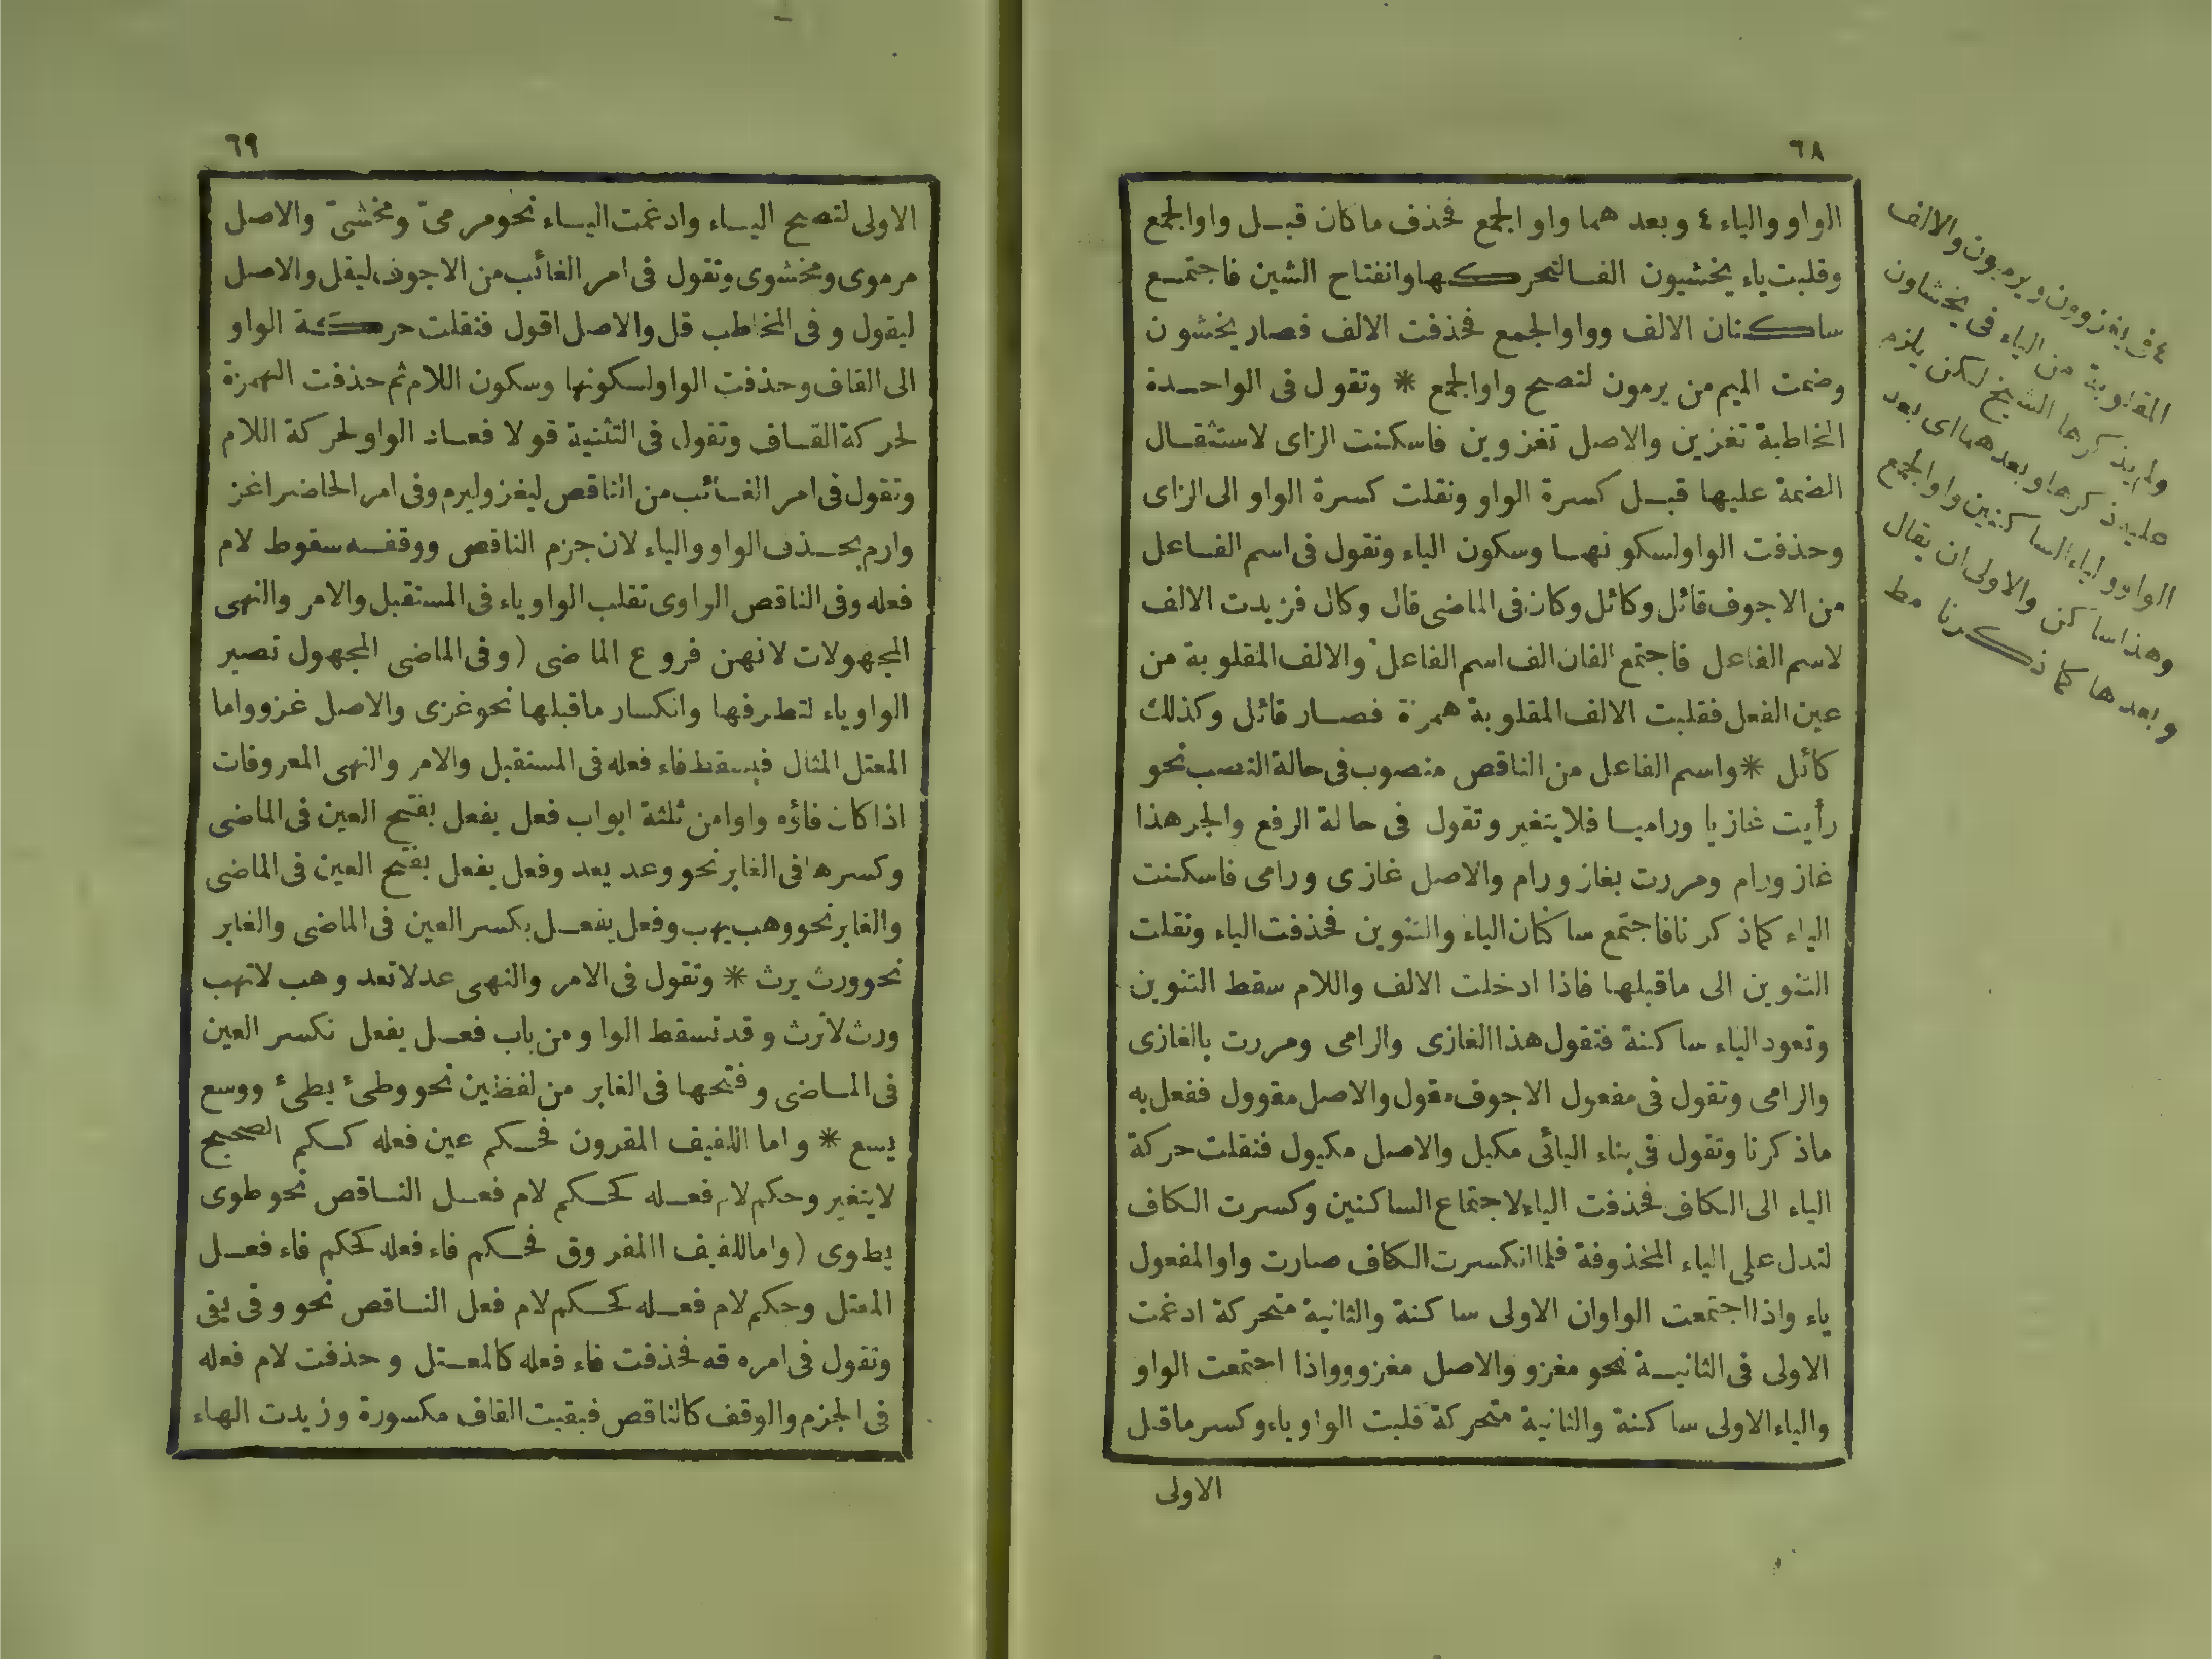 ٦٨
الواو والياء ٤ وبعد هما واو الجمع فحذف ما كان قبل واو الجمع
وقلبت ياء يخشيون الفا لتحركها وانفتاح الشين فاجتمع
ساكنان الالف وواو الجمع فحذفت الالف فصار يخشون
وضمت الميم من يرمون لتصح واو الجمع * وتقول فى الواحدة
المخاطبة تغزين والاصل تغزوين فاسكنت الزاى لاستثقال
الضمة عليها قبل كسرة الواو ونقلت كسرة الواو الى الزاى
وحذفت الواو لسكونها وسكون الياء وتقول فى اسم الفاعل
من الاجوف قائل وكائل وكان فى الماضى قال وكال فزيدت الالف
لاسم الفاعل فاجتمع الفان الف اسم الفاعل والالف المقلوبة من
عين الفعل فقلبت الالف المقلوبة همزة فصار قائل وكذلك
كائل * واسم الفاعل من الناقص منصوب فى حالة النصب نحو
رأيت غازيا وراميا فلا يتغير وتقول فى حالة الرفع والجر هذا
غاز ورام ومررت بغاز ورام والاصل غازى ورامى فاسكنت
الياء كما ذكرنا فاجتمع ساكنان الياء والتنوين فحذفت الياء ونقلت
التنوين الى ما قبلها فاذا ادخلت الالف واللام سقط التنوين
وتعود الياء ساكنة فتقول هذا الغازى والرامى ومررت بالغازى
والرامى وتقول فى مفعول الاجوف مقول والاصل مقوول ففعل به
ما ذكرنا وتقول فى بناء اليائى مكيل والاصل مكيول فنقلت حركة
الياء الى الكاف فحذفت الياء لاجتماع الساكنين وكسرت الكاف
لتدل على الياء المحذوفة فلما انكسرت الكاف صارت واو المفعول
ياء واذا اجتمعت الواوان الاولى ساكنة والثانية متحركة ادغمت
الاولى فى الثانية نحو مغزو والاصل مغزوو واذا اجتمعت الواو
والياء الاولى ساكنة والثانية متحركة قلبت الواو ياء وكسر ما قبل
الاولى
٤ فى يغزوون ويرميون والالف
المقلوبة من الياء فى يخشاون
ولم يذكرها الشيخ لكن يلزم
عليه ذكرها وبعدهما اى بعد
الواو والياء الساكنين واو الجمع
وهذا ساكن والاولى ان يقال
وبعدها كما ذكرنا مط
٦٩
الاولى لتصح الياء وادغمت الياء نحو مرمىّ ومخشىّ والاصل
مرموى ومخشوى وتقول فى امر الغائب من الاجوف ليقل والاصل
ليقول وفى المخاطب قل والاصل اقول فنقلت حركة الواو
الى القاف وحذفت الواو لسكونها وسكون اللام ثم حذفت الهمزة
لحركة القاف وتقول فى التثنية قولا فعاد الواو لحركة اللام
وتقول فى امر الغائب من الناقص ليغز وليرم وفى امر الحاضر اغز
وارم بحذف الواو والياء لان جزم الناقص ووقفه سقوط لام
فعله وفى الناقص الواوى تقلب الواو ياء فى المستقبل والامر والنهى
المجهولات لانهن فروع الماضى (وفى الماضى المجهول تصير
الواو ياء لتطرفها وانكسار ما قبلها نحو غزى والاصل غزو واما
المعتل المثال فيسقط فاء فعله فى المستقبل والامر والنهى المعروفات
اذا كان فاؤه واوا من ثلثة ابواب فعل يفعل بفتح العين فى الماضى
وكسرها فى الغابر نحو وعد يعد وفعل يفعل بفتح العين فى الماضى
والغابر نحو وهب يهب وفعل يفعل بكسر العين فى الماضى والغابر
نحو ورث يرث * وتقول فى الامر والنهى عد لا تعد وهب لا تهب
ورث لا ترث وقد تسقط الواو من باب فعل يفعل نكسر العين
فى الماضى وفتحها فى الغابر من لفظين نحو وطئ يطئ ووسع
يسع * واما اللفيف المقرون فحكم عين فعله كحكم الصحيح
لا يتغير وحكم لام فعله كحكم لام فعل الناقص نحو طوى
يطوى (واما اللفيف المفروق فحكم فاء فعله كحكم فاء فعل
المعتل وحكم لام فعله كحكم لام فعل الناقص نحو وقى يقى
وتقول فى امره قه فحذفت فاء فعله كالمعتل وحذفت لام فعله
فى الجزم والوقف كالناقص فبقيت القاف مكسورة وزيدت الهاء